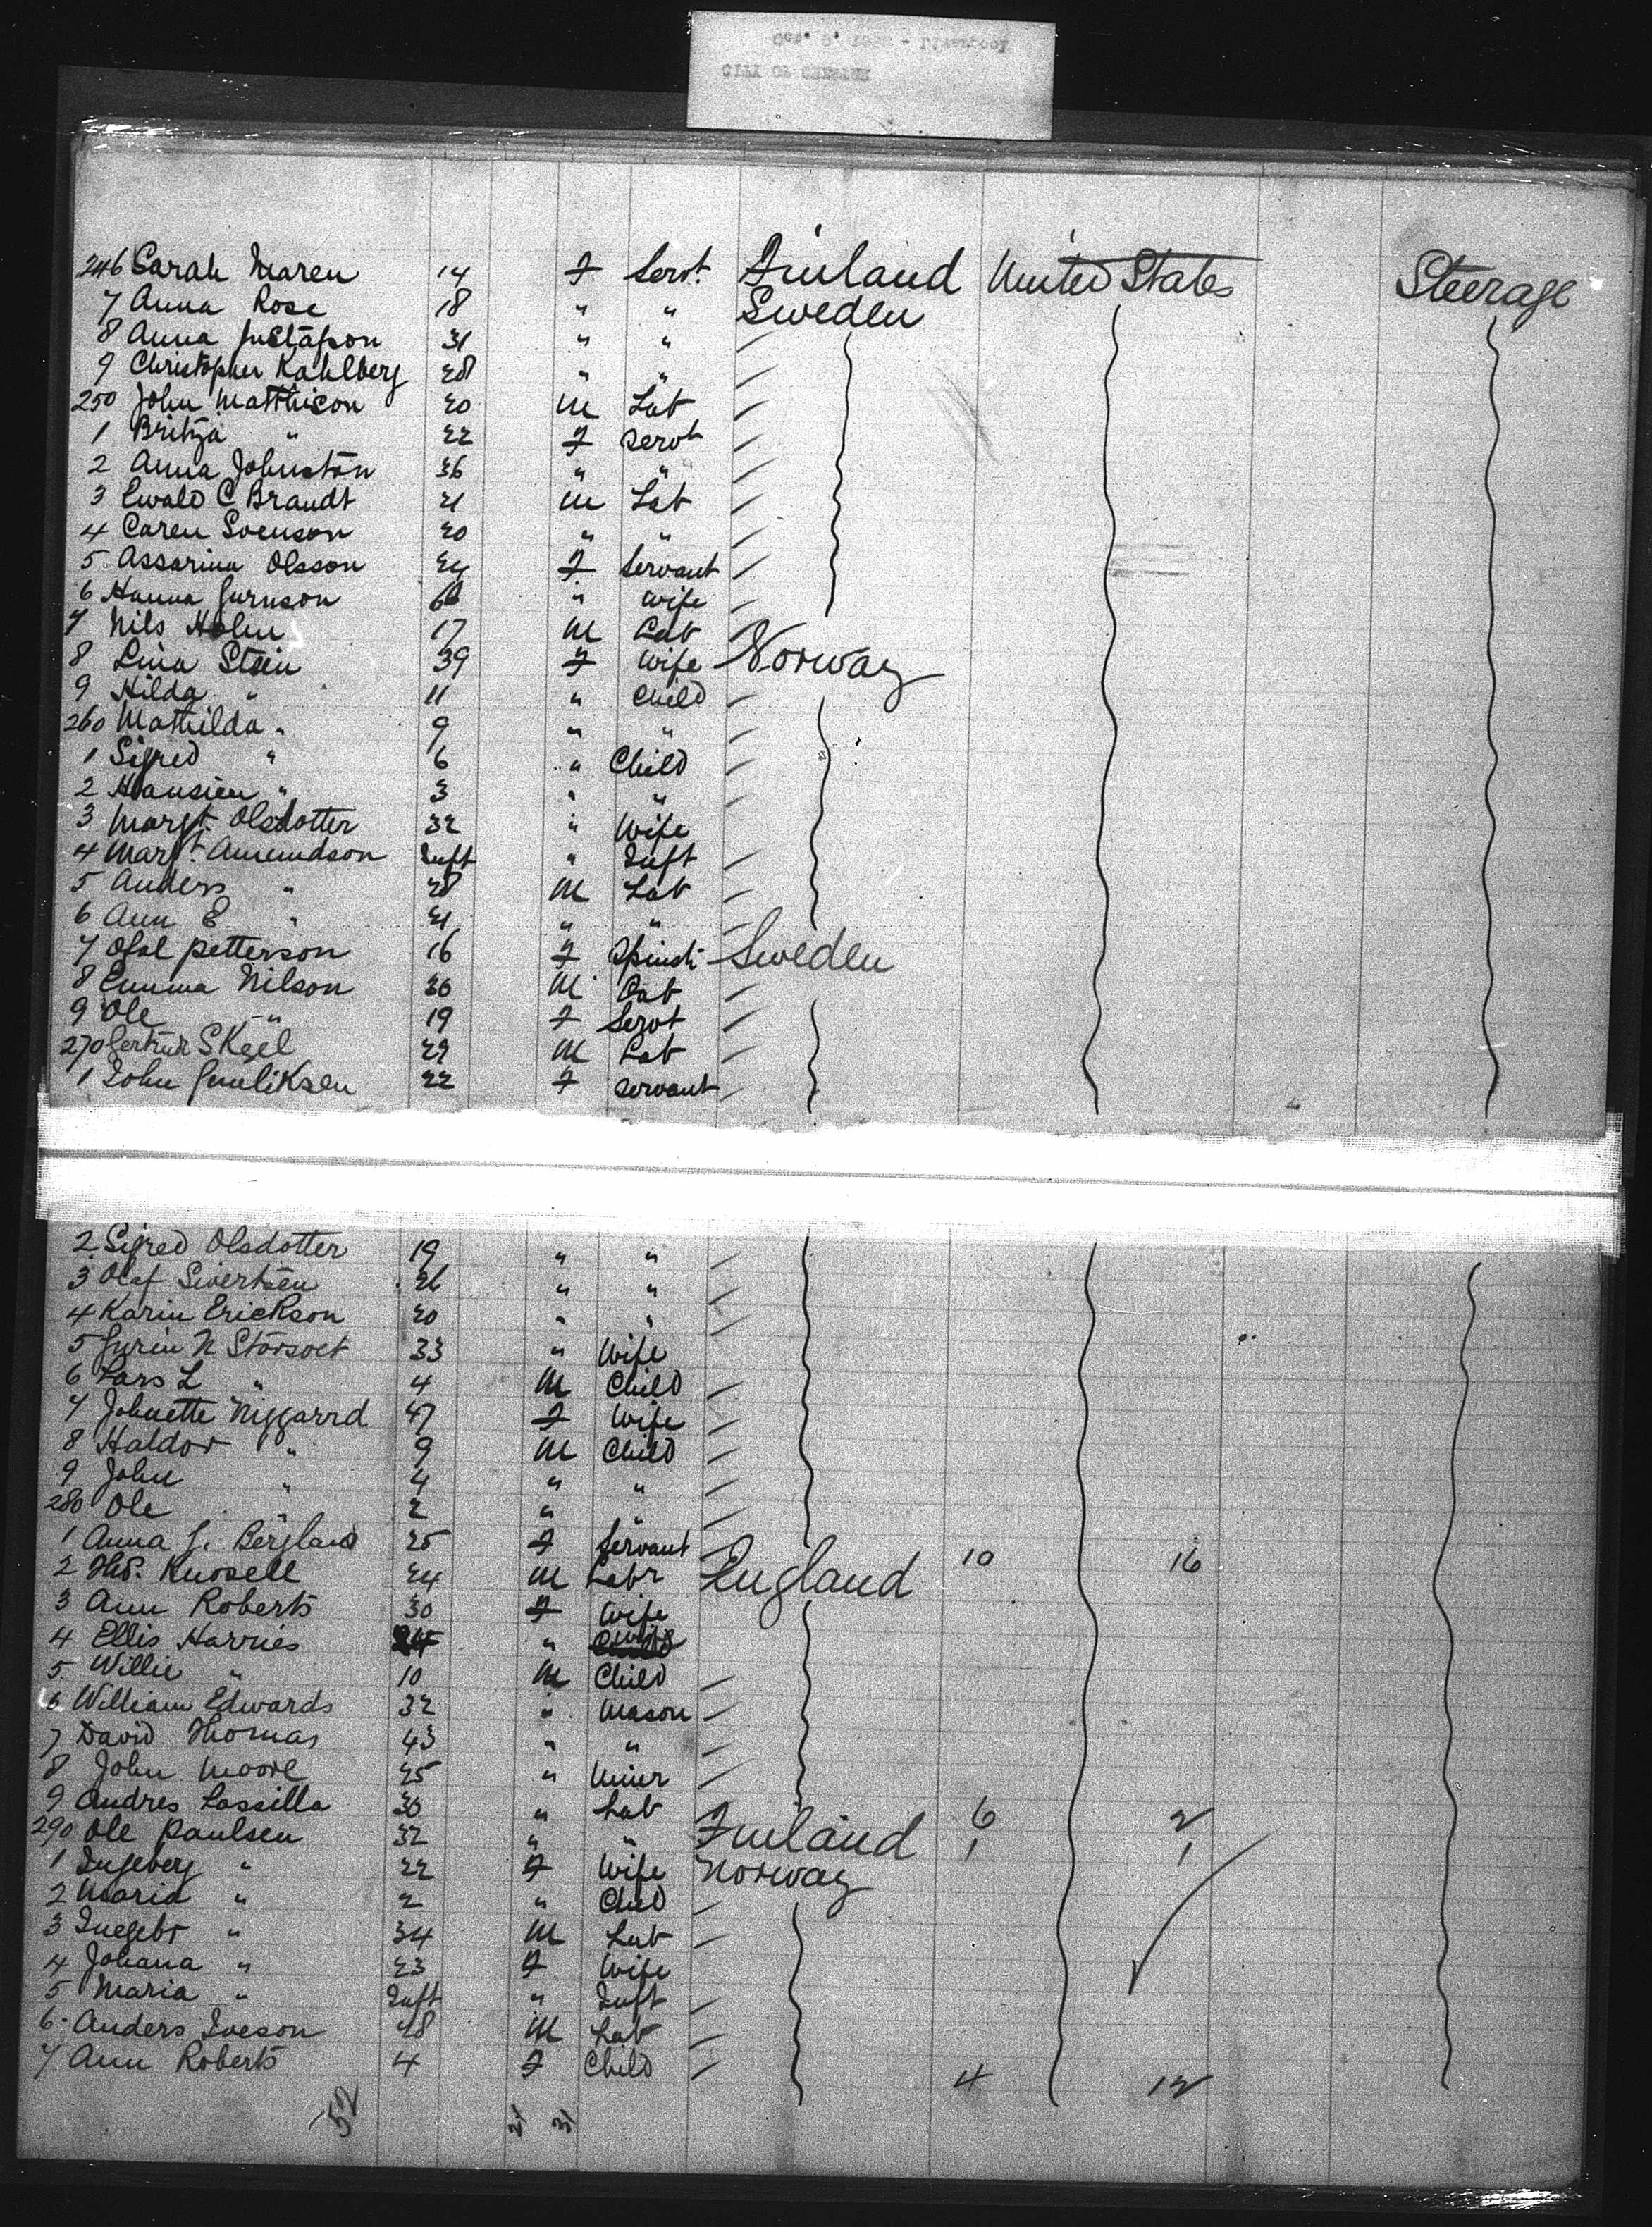 246 Sarah Maren 14 F Servt. Finland United States Steerage
7 Anna Rose 18 " " Sweden
8 Anna Gustafson 31 " "
9 Christopher Kahlberg 28 " "
250 John Matthison 20 M Lab
1 Britza " 22 F Servt
2 Anna Johnston 36 " "
3 Ewald C Brandt 21 M Lab
4 Caren Svenson 20 " "
5 Assarina Olsson 24 F Servant
6 Hanna Gurnson " Wife
7 Nils Holm 17 M Lab
8 Lina Stein 39 F Wife Norway
9 Hilda " 11 " Child
260 Mathilda " 9 " "
1 Sigred " 6 " Child
2 Hansien " 3 " "
3 Margt. Olsdotter 32 " Wife
4 Margt. Amundson Inft " Inft
5 Anders " 28 M Lab
6 Ann E " 21 " "
7 Ofal Petterson 16 F Spinst Sweden
8 Emma Nilson 30 M Lab
9 Ole " 19 F Servt
270 Gertrud S Kgel 29 M Lab
1 John Gunliksen 22 F Servant
2 Sigred Olsdotter 19 " "
3 Olaf Sivertsen 26 " "
4 Karin Erickson 20 " "
5 Gurin N Storsoet 33 " Wife
6 Lars L " 4 M Child
7 Johnette Niggarrd 47 F Wife
8 Haldor " 9 M Child
9 John " 4 " "
280 Ole " 2 "
1 Anna G. Bergland 25 F Servant 10 16
2 Knosell 24 M Labr England
3 Ann Roberts 30 F Wife
4 Ellis Harries " Wife
5 Willie " 10 M Child
6 William Edwards 32 " Mason
7 David Thomas 43 " "
8 John Moore 25 " Miner
9 Andres Lassilla 30 " Lab 6 2
290 Ole Paulsen 32 " " Finland 1 1
1 Ingeberg " 22 F Wife Norway
2 Maria " 2 " Child
3 Inegebr " 34 M Lab
4 Johana " 23 F Wife
5 Maria " Inft " Inft
6 Anders Iveson 48 M Lab
7 Ann Roberts 4 F Child 4 12
52 21 31